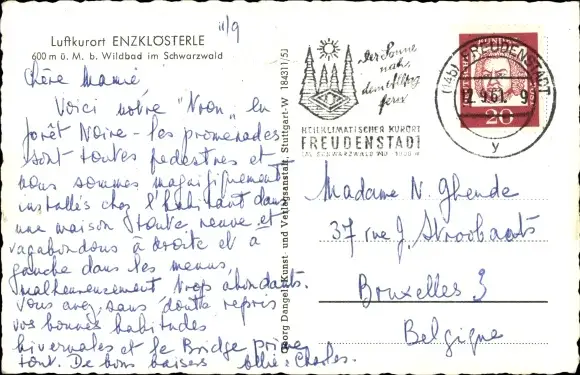 11/9
Luftkurort ENZKLÖSTERLE
600 m ü. M. b. Wildbad im Schwarzwald
Chère Mamie
Voici notre "Tron" en
forêt Noire - les promenades
sont toutes pedestres et
nous sommes magnifiquement
installés chez l'habitant dans
une maison toute neuve et
vagabondons à droite et à
gauche dans les menus,
malheureusement trop abondants.
Vous avez, sans doute repris
vos bonnes habitudes
hivernales et le Bridge prime
tout. De bons baisers Charles.
Georg Dangel, Kunst- und Verlagsanstalt, Stuttgart-W 184311/51
Der Sonne
nah,
dem Alltag
fern
HEILKLIMATISCHER KURORT
FREUDENSTADT
(14b) FREUDENSTADT
12.9.61. 9
y
20
Madame N. Ghende
37 rue J. Stroobants
Bruxelles 3
Belgique